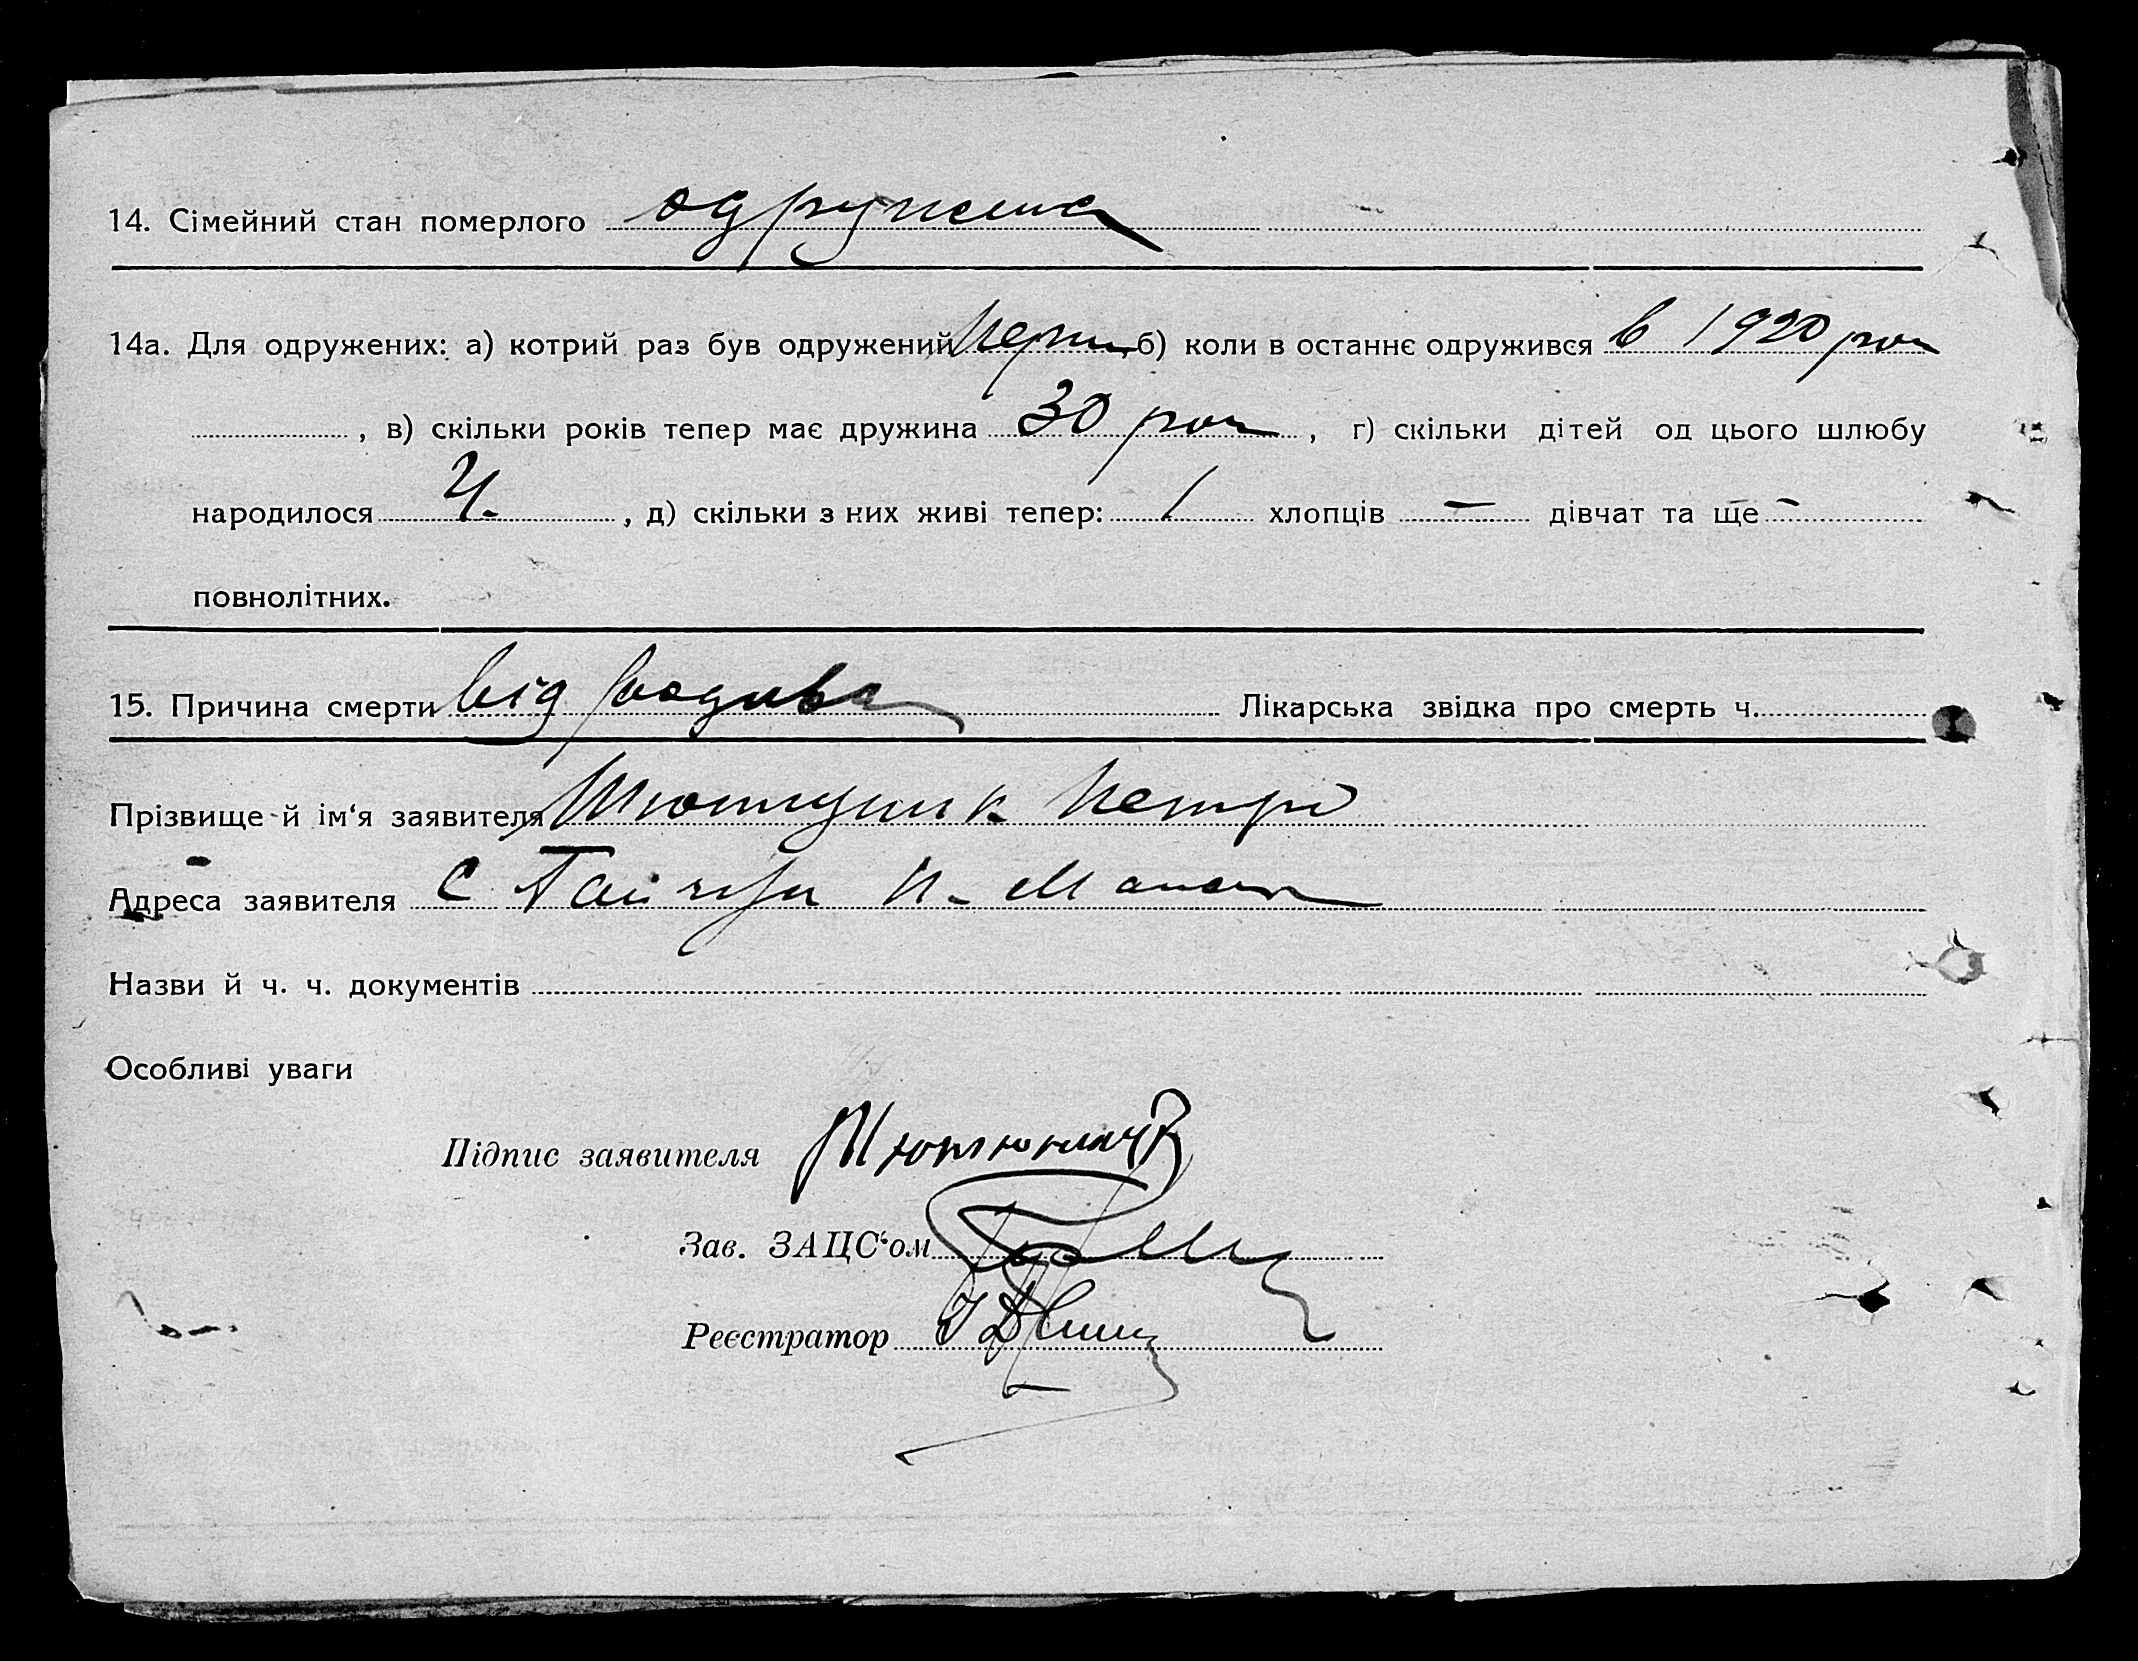 14. Сімейний стан померлого одружена
14а. Для одружених: а) котрий раз був одружений перш, б) коли в останнє одружився в 1920 роц
, в) скільки років тепер має дружина 30 рок, г) скільки дітей од цього шлюбу
народилося 4. , д) скільки з них живі тепер: 1 хлопців — дівчат та ще —
повнолітних.
15. Причина смерти від родива Лікарська звідка про смерть ч.
Прізвище й ім'я заявителя Петро
Адреса заявителя с
Назви й ч. ч. документів
Особливі уваги
Підпис заявителя
Зав. ЗАЦС'ом
Реєстратор